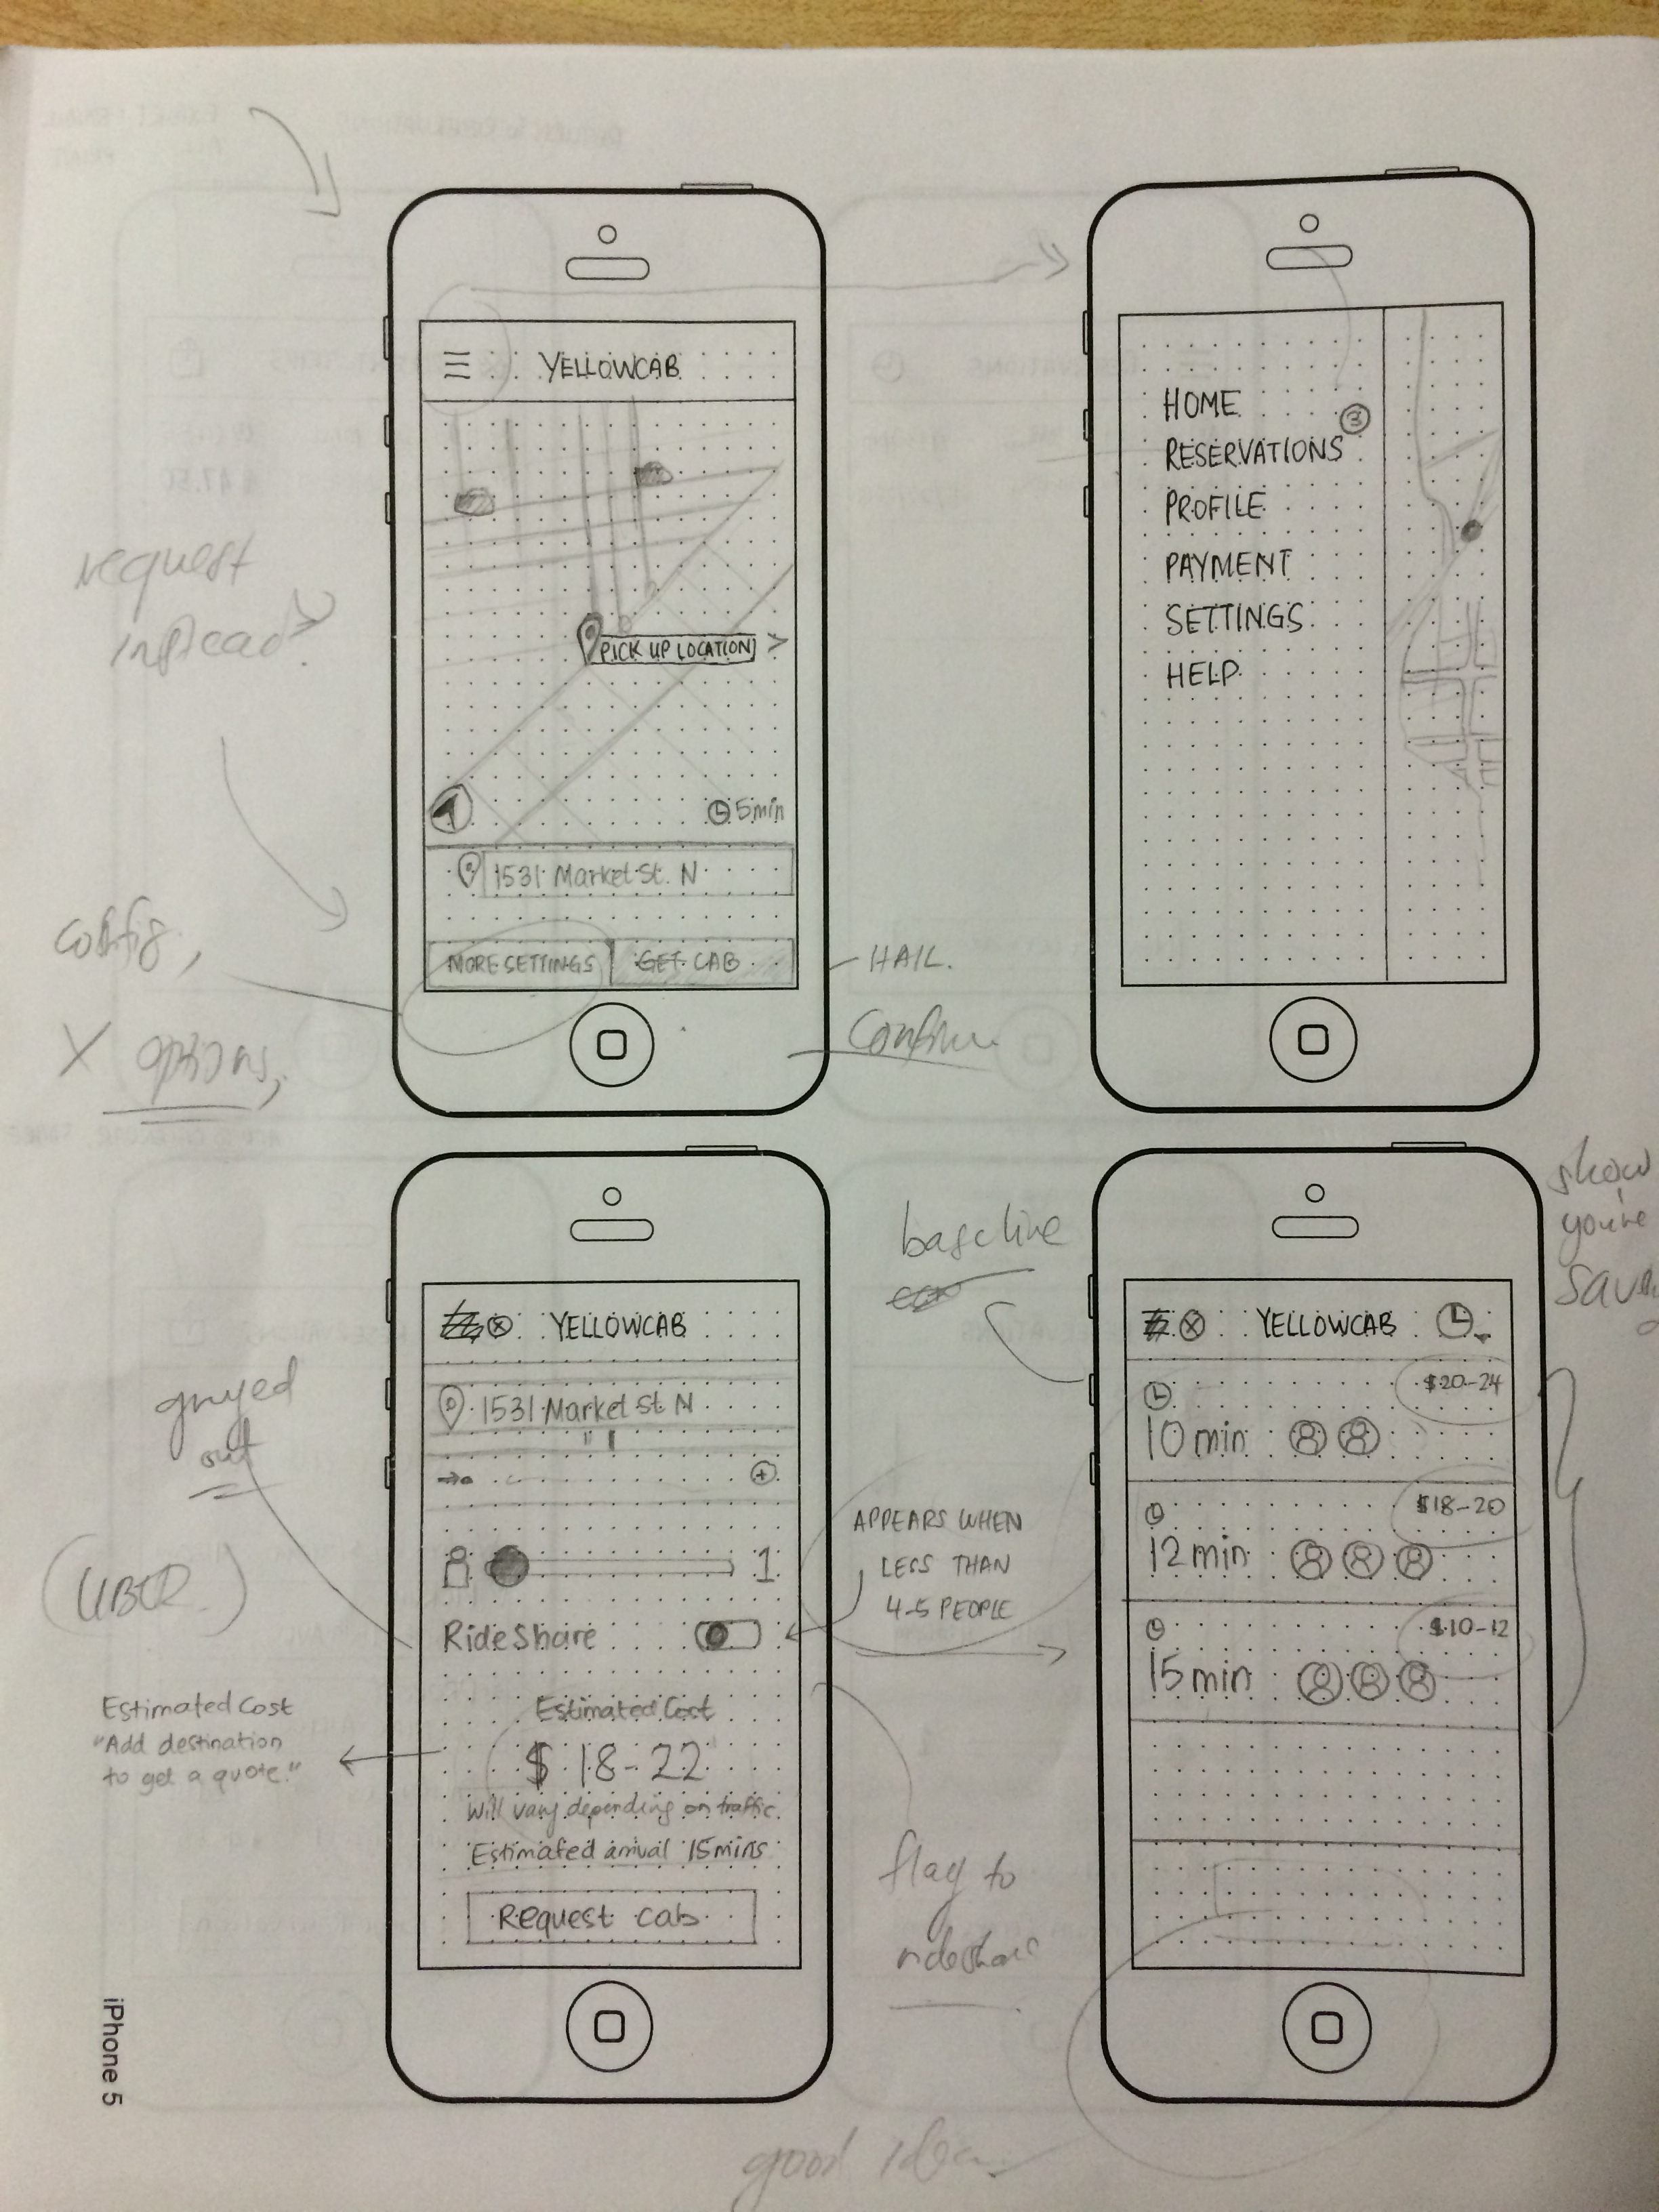 YELLOWCAB
PICK UP LOCATION >
5min
1531 Market St. N
MORE SETTINGS
GET CAB
request
instead?
config,
X options,
HAIL.
Confirm
HOME
3
RESERVATIONS
PROFILE
PAYMENT
SETTINGS
HELP
YELLOWCAB
1531 Market St N
1
RideShare
Estimated Cost
$ 18-22
Will vary depending on traffic.
Estimated arrival 15mins
Request cab
grayed
out
(UBER)
Estimated Cost
"Add destination
to get a quote."
APPEARS WHEN
LESS THAN
4-5 PEOPLE
flag to
rideshare
baseline
YELLOWCAB
$20-24
10 min
$18-20
12 min
$10-12
15 min
show
you're
good idea
iPhone 5